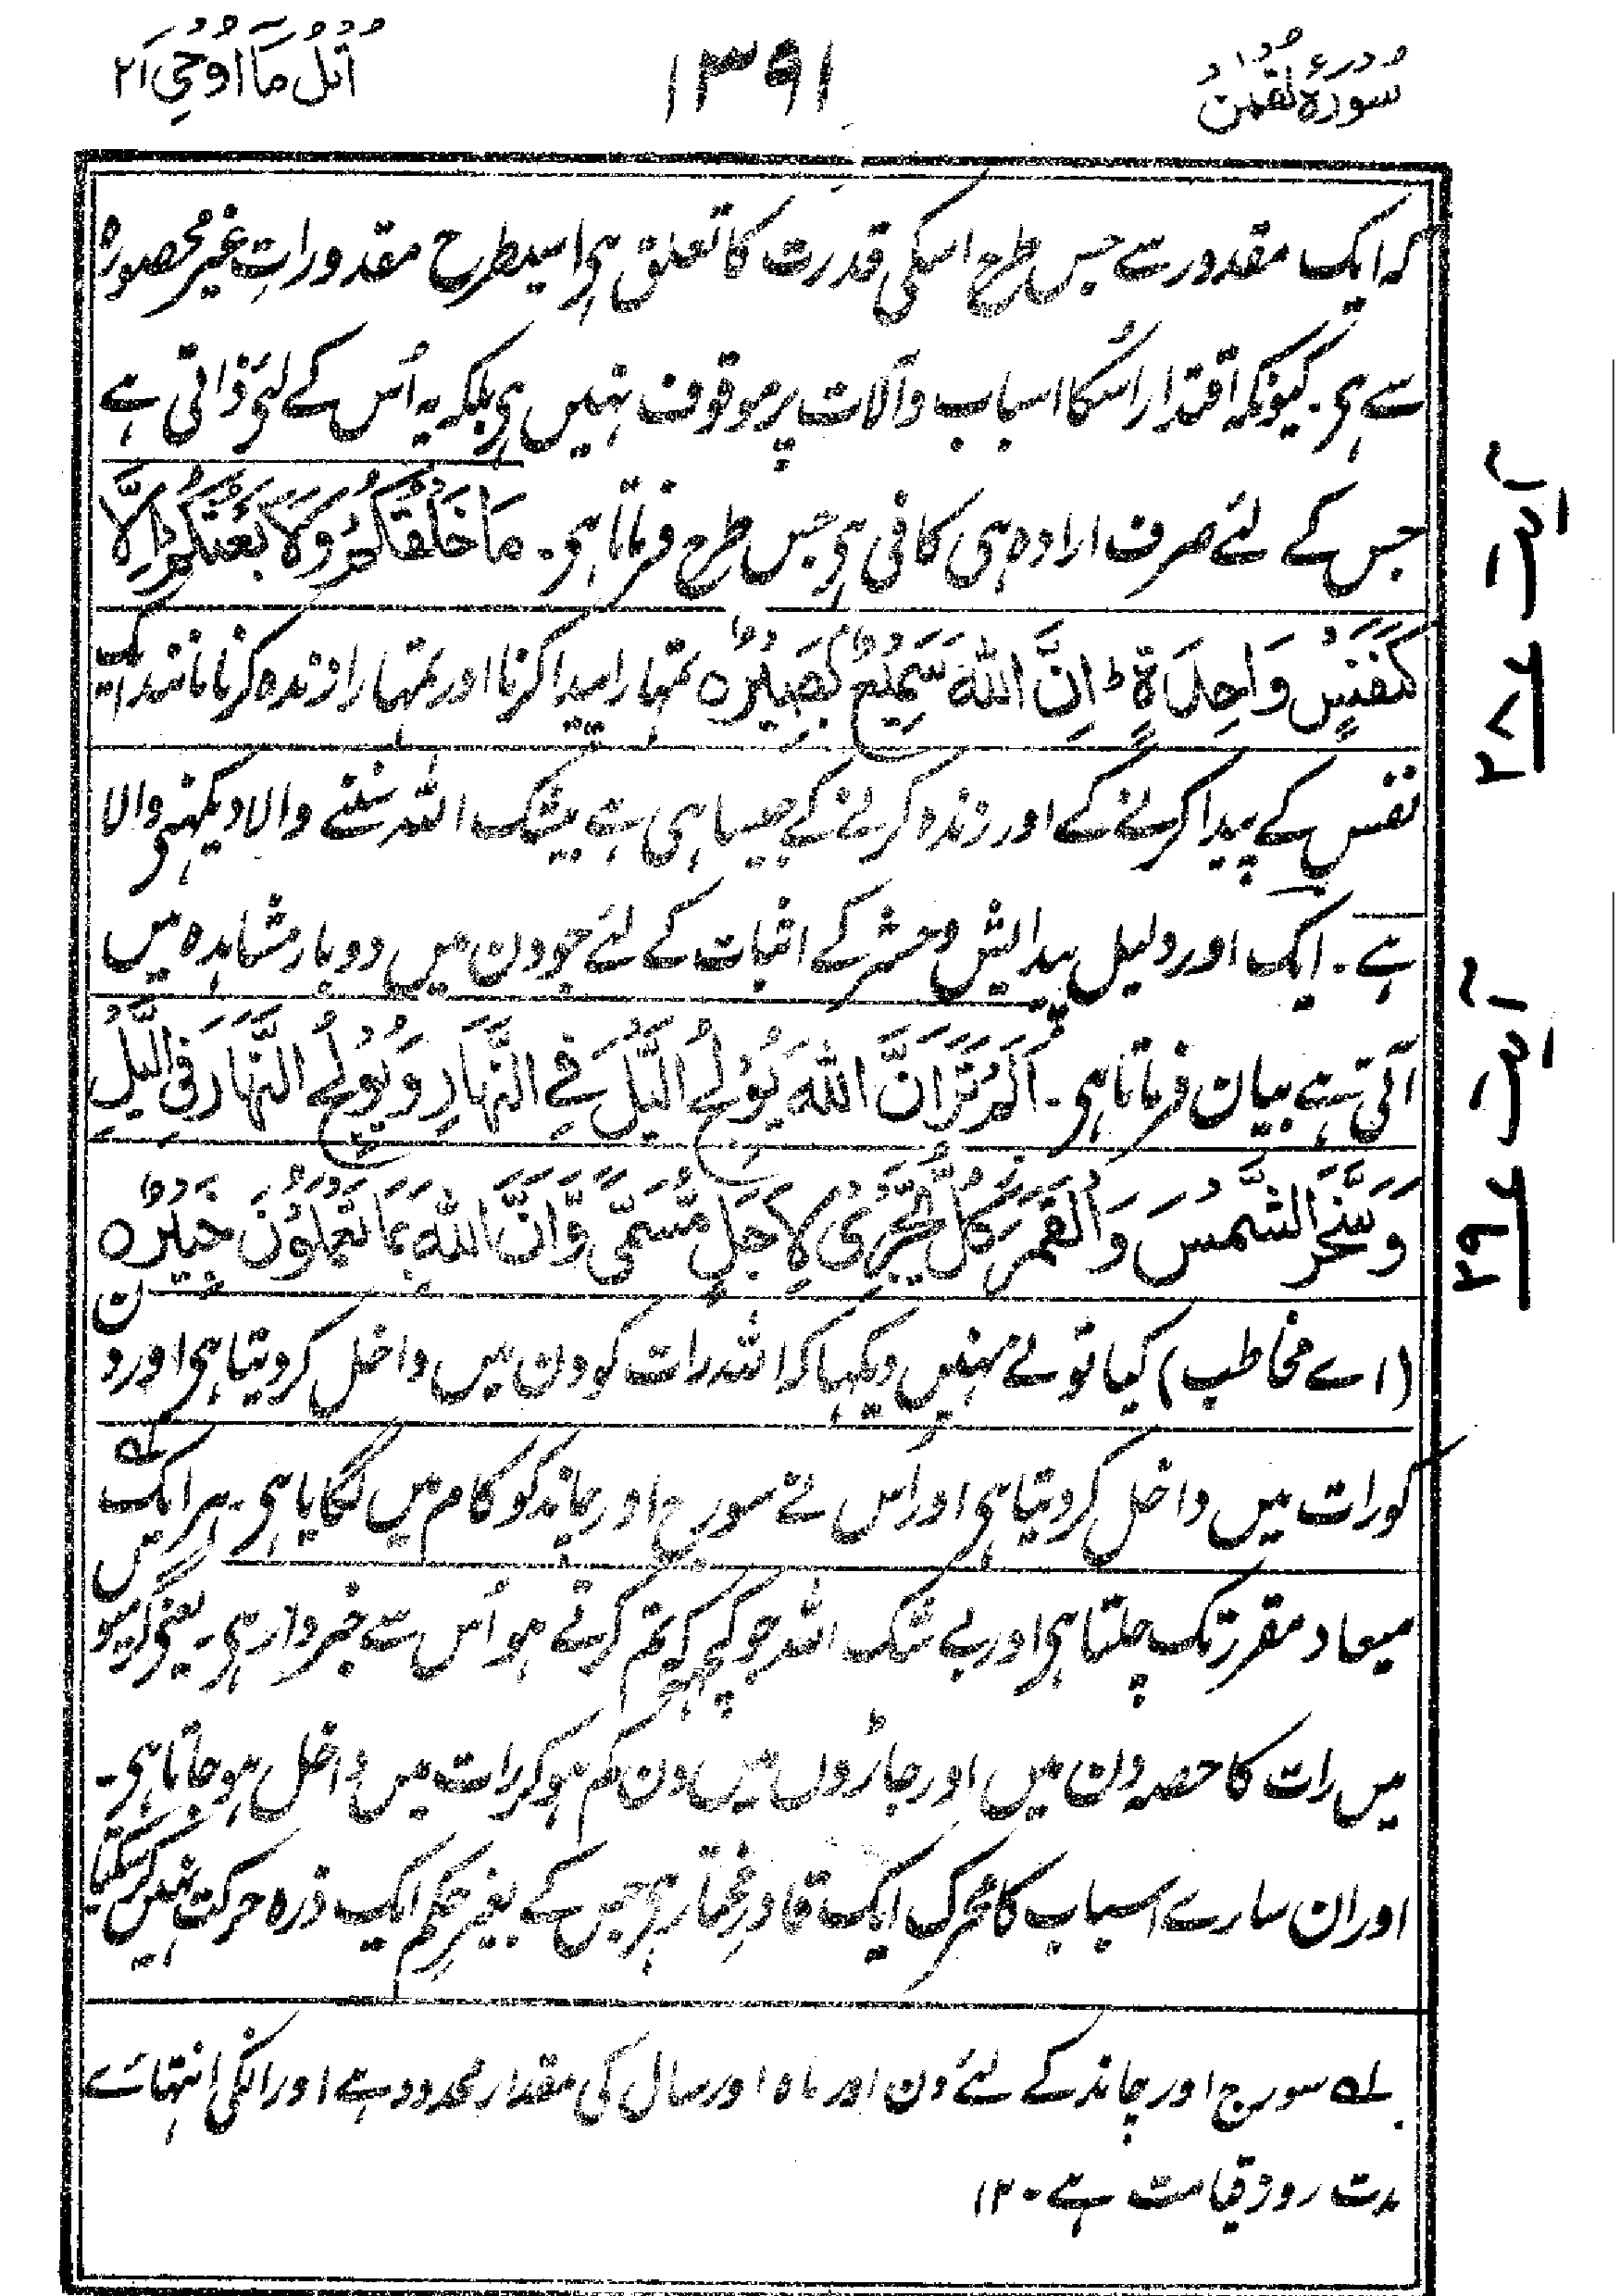 سورۂ لقمٰن
۱۳۹۱
اُتْلُ مَآ اُوْحِیَ ۲۱
کہ ایک مقدور سے جس طرح اسکی قدرت کا تعلق ہی اسیطرح مقدوراتِ غیر محصورہ
سے ہی۔ کیونکہ اقتدار اسُکا اسباب وآلات پر موقوف نہیں ہی بلکہ یہ اُس کے لئے ذاتی ہے
جس کے لئے صرف ارادہ ہی کافی ہی جس طرح فرماتا ہی۔ مَا خَلْقُكُمْ وَلَا بَعْثُكُمْ اِلَّا
كَنَفْسٍ وَّاحِدَةٍ ؕ اِنَّ اللهَ سَمِيْعٌۢ بَصِيْرٌ ہ تمہارا پیدا کرنا اور تمہارا زندہ کرنا مانند ایک
نفس کے پیدا کرنے کے اور زندہ کرنے کے جیسا ہی ہے بیشک اللہ سننے والا دیکہنی والا
ہے۔ ایک اور دلیل پیدایش وحشر کے اثبات کے لئے جو دن میں دو بار مشاہدہ میں
آتی ہے بیان فرماتا ہی۔ اَلَمْ تَرَ اَنَّ اللهَ يُوْلِجُ الَّيْلَ فِے النَّهَارِ وَيُوْلِجُ النَّهَارَ فِی الَّيْلِ
وَسَخَّرَ الشَّمْسَ وَالْقَمَرَ كُلٌّ يَّجْرِیْٓ لِاَجَلٍ مُّسَمًّى وَّاَنَّ اللهَ بِمَا تَعْمَلُوْنَ خَبِيْرٌ ہ
(اے مخاطب) کیا تو نے نہیں دیکہا کہ اللہ رات کو دن میں داخل کر دیتا ہی اور دن
کو رات میں داخل کر دیتا ہی اور اُس نے سورج اور چاند کو کام میں لگایا ہی۔ ہر ایک لہ
میعاد مقرر تک چلتا ہی اور بے شک اللہ جو کچہہ کہ تم کرتے ہو اُس سے خبردار ہی۔ یعنی گرمیوں
میں رات کا حصہ دن میں اور جاڑوں میں دن کم ہو کر رات میں داخل ہو جاتا ہی۔
اور ان سارے اسباب کا محرک ایک قادرِ مختار ہی جس کے بغیر حکم ایک ذرہ حرکت نہیں کر سکتا۔
لہ سورج اور چاند کے لئے دن اور ماہ اور سال کی مقدار محدود ہے اور انکی انتہائے
مدت روز قیامت ہے۔ ۱۲
آیۃ ۲۸
آیۃ ۲۹